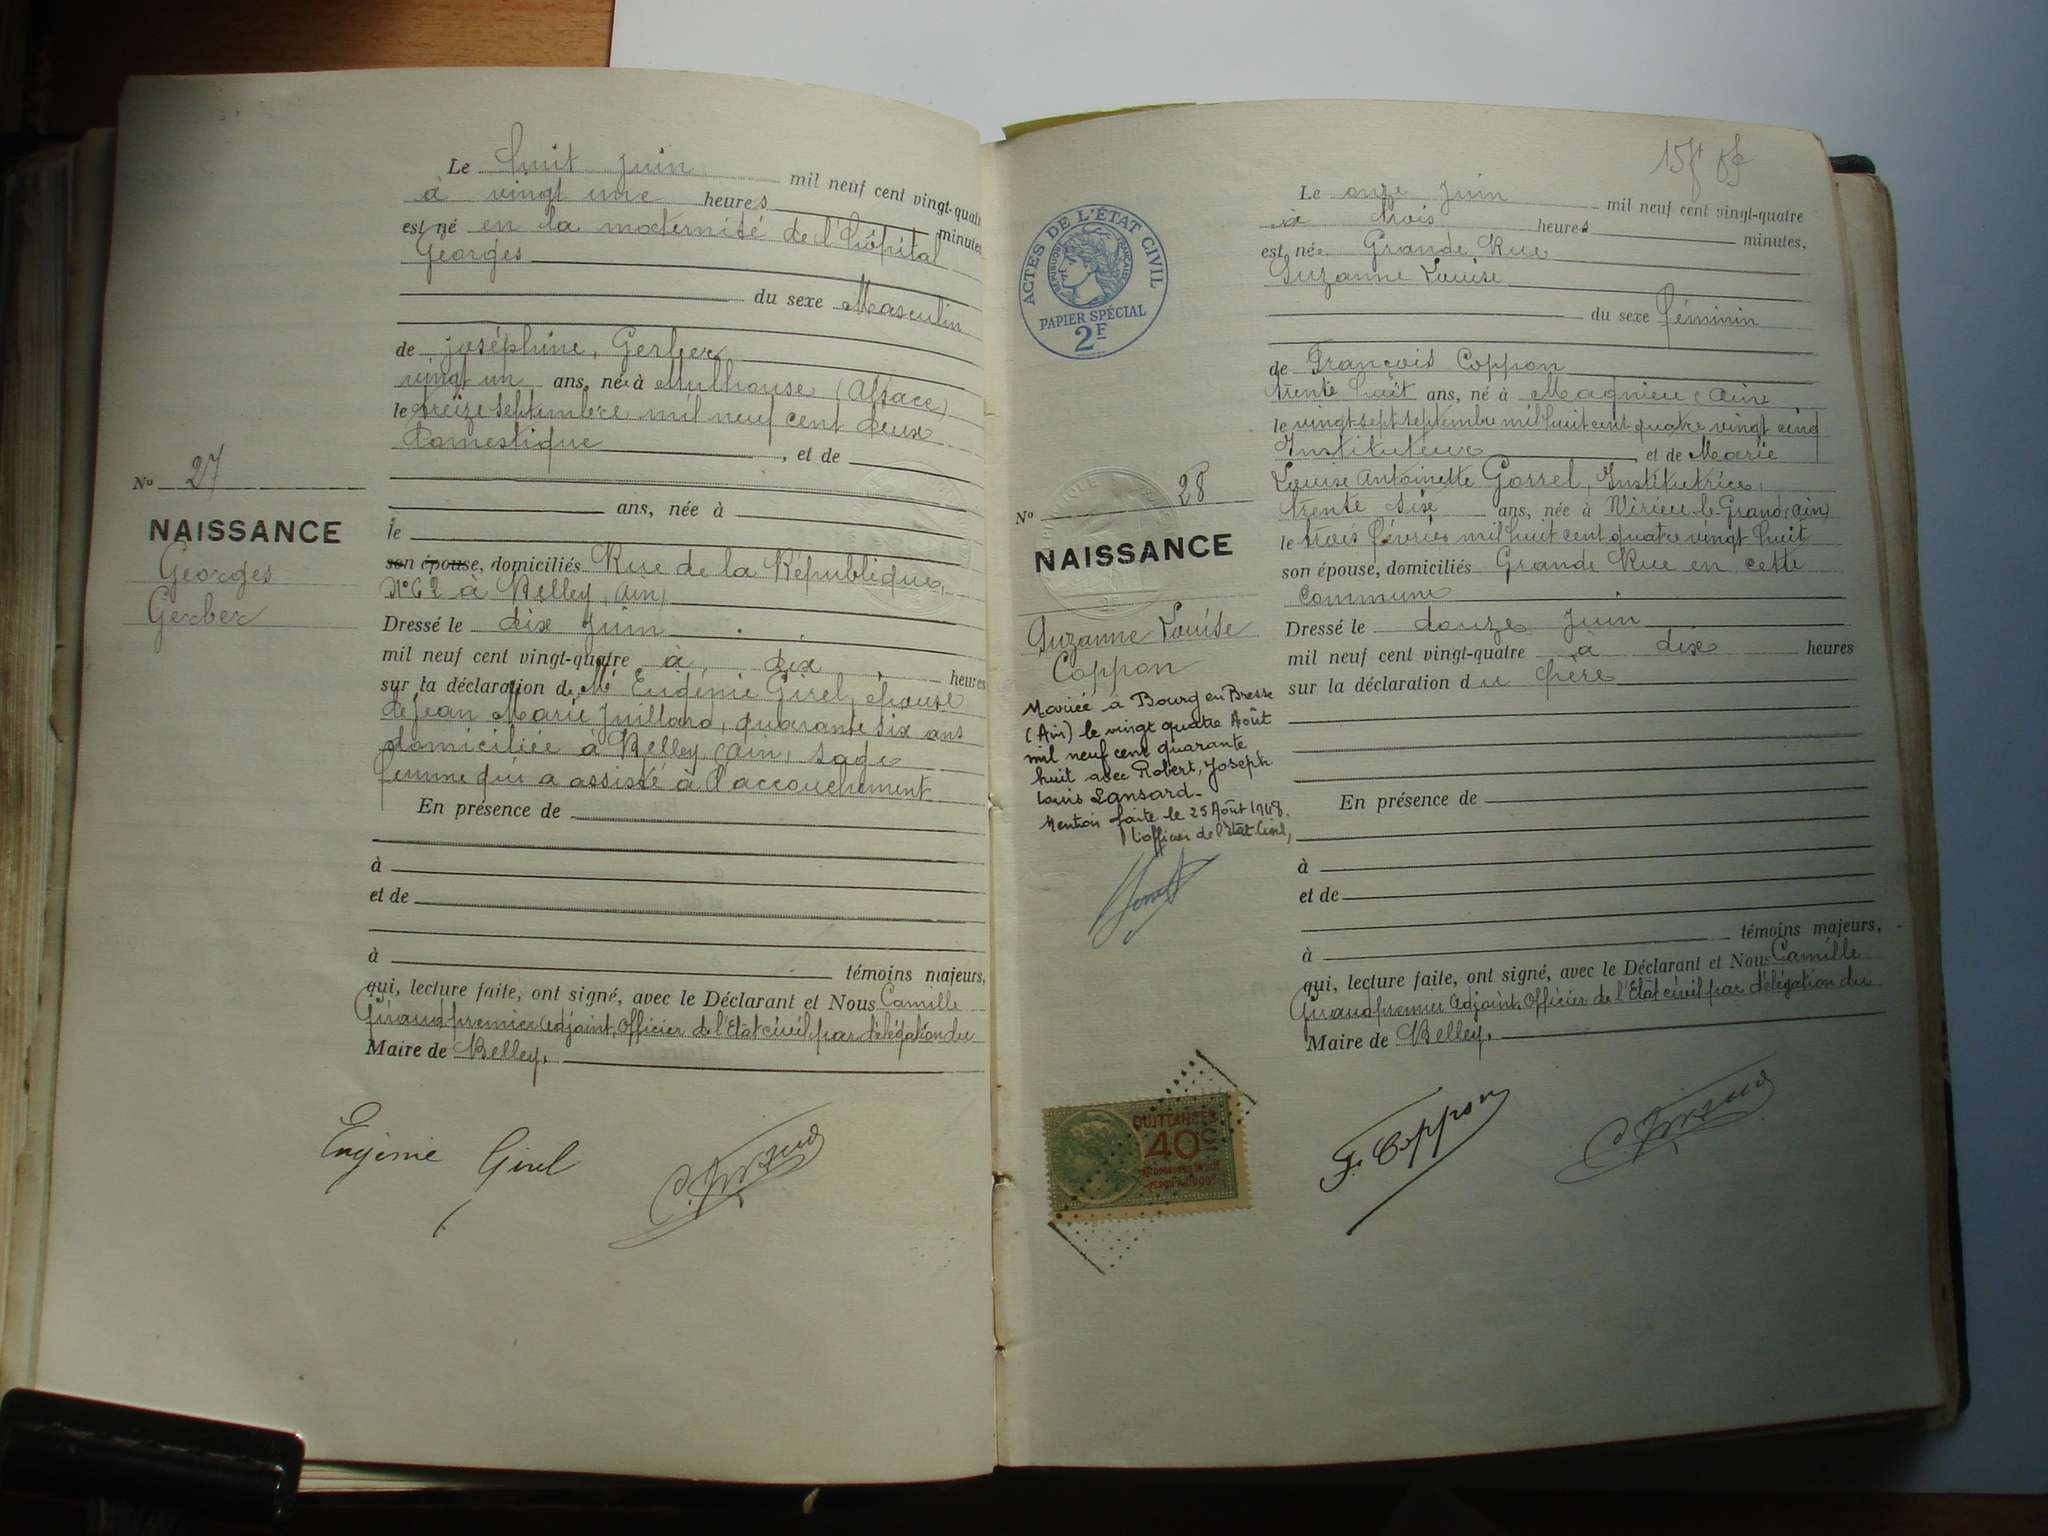 Le huit juin mil neuf cent vingt-quatre
à vingt une heures minutes
est né en la maternité de l'hôpital
Georges
du sexe Masculin
de Joséphine, Gerber
vingt un ans, née à Mulhouse (Alsace)
le treize septembre mil neuf cent deux
domestique, et de
ans, née à
le
son épouse, domiciliés Rue de la République,
N° 62 à Belley (Ain)
Dressé le dix Juin
mil neuf cent vingt-quatre à dix heures
sur la déclaration de Me Eugénie Girel, épouse
de Jean Marie Juilland, quarante six ans
domiciliée à Belley (Ain) sage
femme qui a assisté à l'accouchement
En présence de
à
et de
à témoins majeurs,
qui, lecture faite, ont signé, avec le Déclarant et Nous Camille
Giraud premier adjoint, Officier de l'Etat civil par délégation du
Maire de Belley.
N° 27
NAISSANCE
Georges
Gerber
Eugénie Girel
C. Giraud
15
Le onze Juin mil neuf cent vingt-quatre
à trois heures minutes,
est née Grande Rue
Suzanne Louise
du sexe féminin
de François Coppon
trente huit ans, né à Magnieu (Ain
le vingt-sept septembre mil huit cent quatre vingt cinq
Instituteur et de Marie
Louise Antoinette Gossel, Institutrice,
trente six ans, née à Virieu-le-Grand (Ain)
le trois février mil huit cent quatre vingt huit
son épouse, domiciliés Grande Rue en cette
commune
Dressé le douze Juin
mil neuf cent vingt-quatre à dix heures
sur la déclaration du père
En présence de
à
et de
à témoins majeurs,
qui, lecture faite, ont signé, avec le Déclarant et Nous Camille
Giraud premier adjoint, Officier de l'Etat civil par délégation du
Maire de Belley.
ACTES DE L'ÉTAT CIVIL
RÉPUBLIQUE FRANÇAISE
PAPIER SPÉCIAL
2F
N° 28
NAISSANCE
Suzanne Louise
Coppon
Mariée à Bourg en Bresse
(Ain) le vingt quatre Août
mil neuf cent quarante
huit avec Robert, Joseph
Louis Lansard.
Mention faite le 25 Août 1948.
L'officier de l'Etat Civil,
QUITTANCES
40c
F. Coppon
C. Giraud